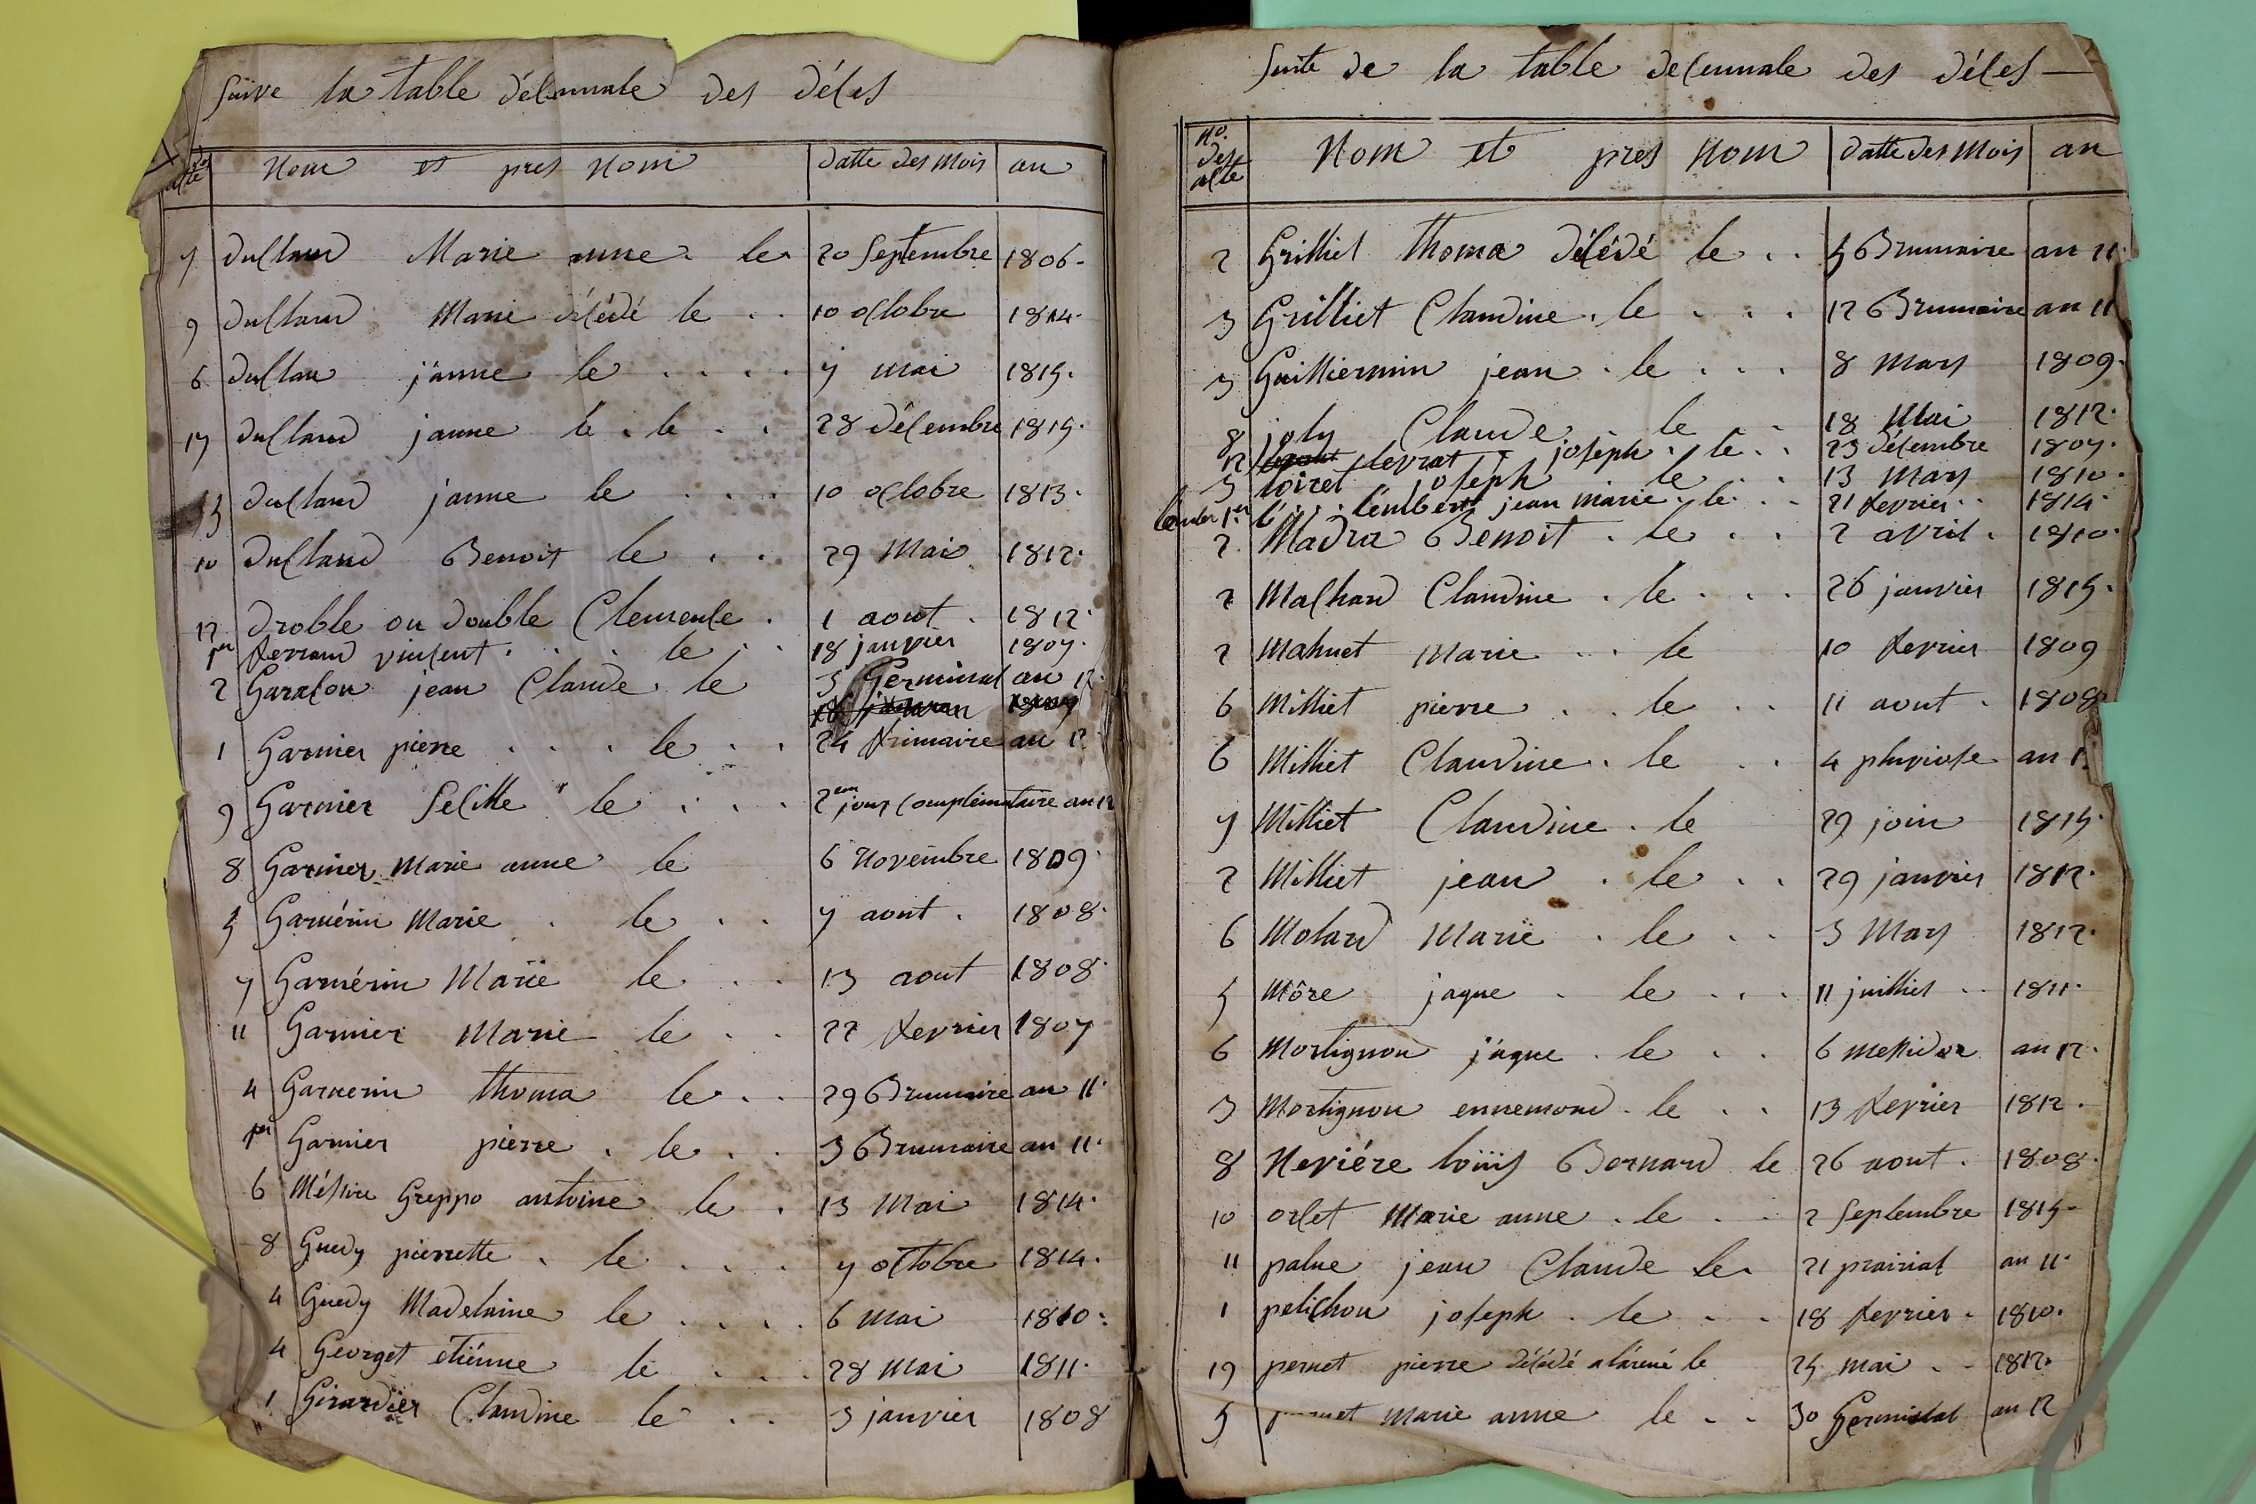 Suive la table décennale des décès
No des acte Nom et pres nom datte des mois an
7 duclaud Marie anne le 20 Septembre 1806
9 duclaud Marie décédé le 10 octobre 1814
6 duclau janne le 7 mai 1815
17 duclaud janne le le 28 décembre 1815
13 duclaud janne le 10 octobre 1813
10 duclaud Benoit le 29 Mai 1812
12 droble ou double Clemence 1 aout 1812
1er ferrand vincent le 18 janvier 1807
2 Garalon jean Claude le 5 Germinal an 12
1 Garnier pierre le 24 frimaire an 12
9 Garnier Felitte le 2em jour complémentaire an 12
8 Garnier Marie anne le 6 Novembre 1809
5 Garnérin Marie le 7 aout 1808
7 Garnérin Marie le 13 aout 1808
11 Garnier Marie le 22 fevrier 1807
4 Garnerin thoma le 29 Brumaire an 11
1er Garnier pierre le 3 Brumaire an 11
6 Méssire Greppo antoine le 13 Mai 1814
8 Guedy pierrette le 7 octobre 1814
4 Guedy Madelaine le 6 mai 1810
4 Georget etiénne le 28 mai 1811
1 Girardier Claudine le 3 janvier 1808
Suite de la table decennale des décès
No. des acte Nom et pres nom datte des mois an
2 Grilliet thoma décédé le 5 Brumaire an 11
3 Grilliet Claudine le 12 Brumaire an 11
3 Guilliermin jean le 8 Mars 1809
8 joly Claude le 18 Mai 1812
12 levrat joseph le 23 décembre 1807
3 loiret joseph le 13 Mars 1810
1er lémbert jean marie le 21 fevrier 1814
2 Madra Benoit le 2 avril 1810
2 Malhard Claudine le 26 janvier 1815
2 Mahuet Marie le 10 fevrier 1809
6 Milliet pierre le 11 aout 1808
6 Milliet Claudine le 4 pluviose an
7 Milliet Claudine le 29 join 1815
2 Milliet jean le 29 janvier 1812
6 Molard Marie le 3 Mars 1812
5 Môre jaque le 11 juilliet 1811
6 Mortignon jaque le 6 messidor an 12
3 Mortignon ennemond le 13 fevrier 1812
8 Neviére loüis Bernard le 26 aout 1808
10 orlet Marie anne le 2 Septembre 1815
11 palue jean Claude le 21 prairial an 11
1 pelichon joseph le 18 fevrier 1810
19 pernet pierre décédé le 25 mai 1812
5 marie anne le 30 Germinal an 12